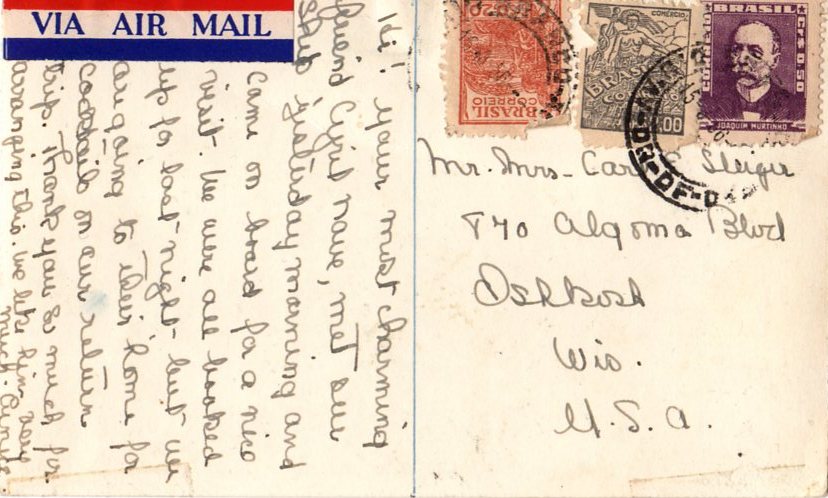 VIA AIR MAIL
Hi! your most charming
friend Cyril Nave, met our
ship yesterday morning and
came on board for a nice
visit. We were all booked
up for last night - but we
are going to their home for
cocktails on our return
trip. Thank you so much for
arranging this. We like him very
much.
BRASIL
CORREIO
COMÉRCIO
BRASIL
CORREIO
BRASIL
CORREIO
CR$ 0,50
JOAQUIM MURTINHO
Mr. Mrs - Carl E Steiger
870 Algoma Blvd
Oshkosh
Wis.
U.S.A.